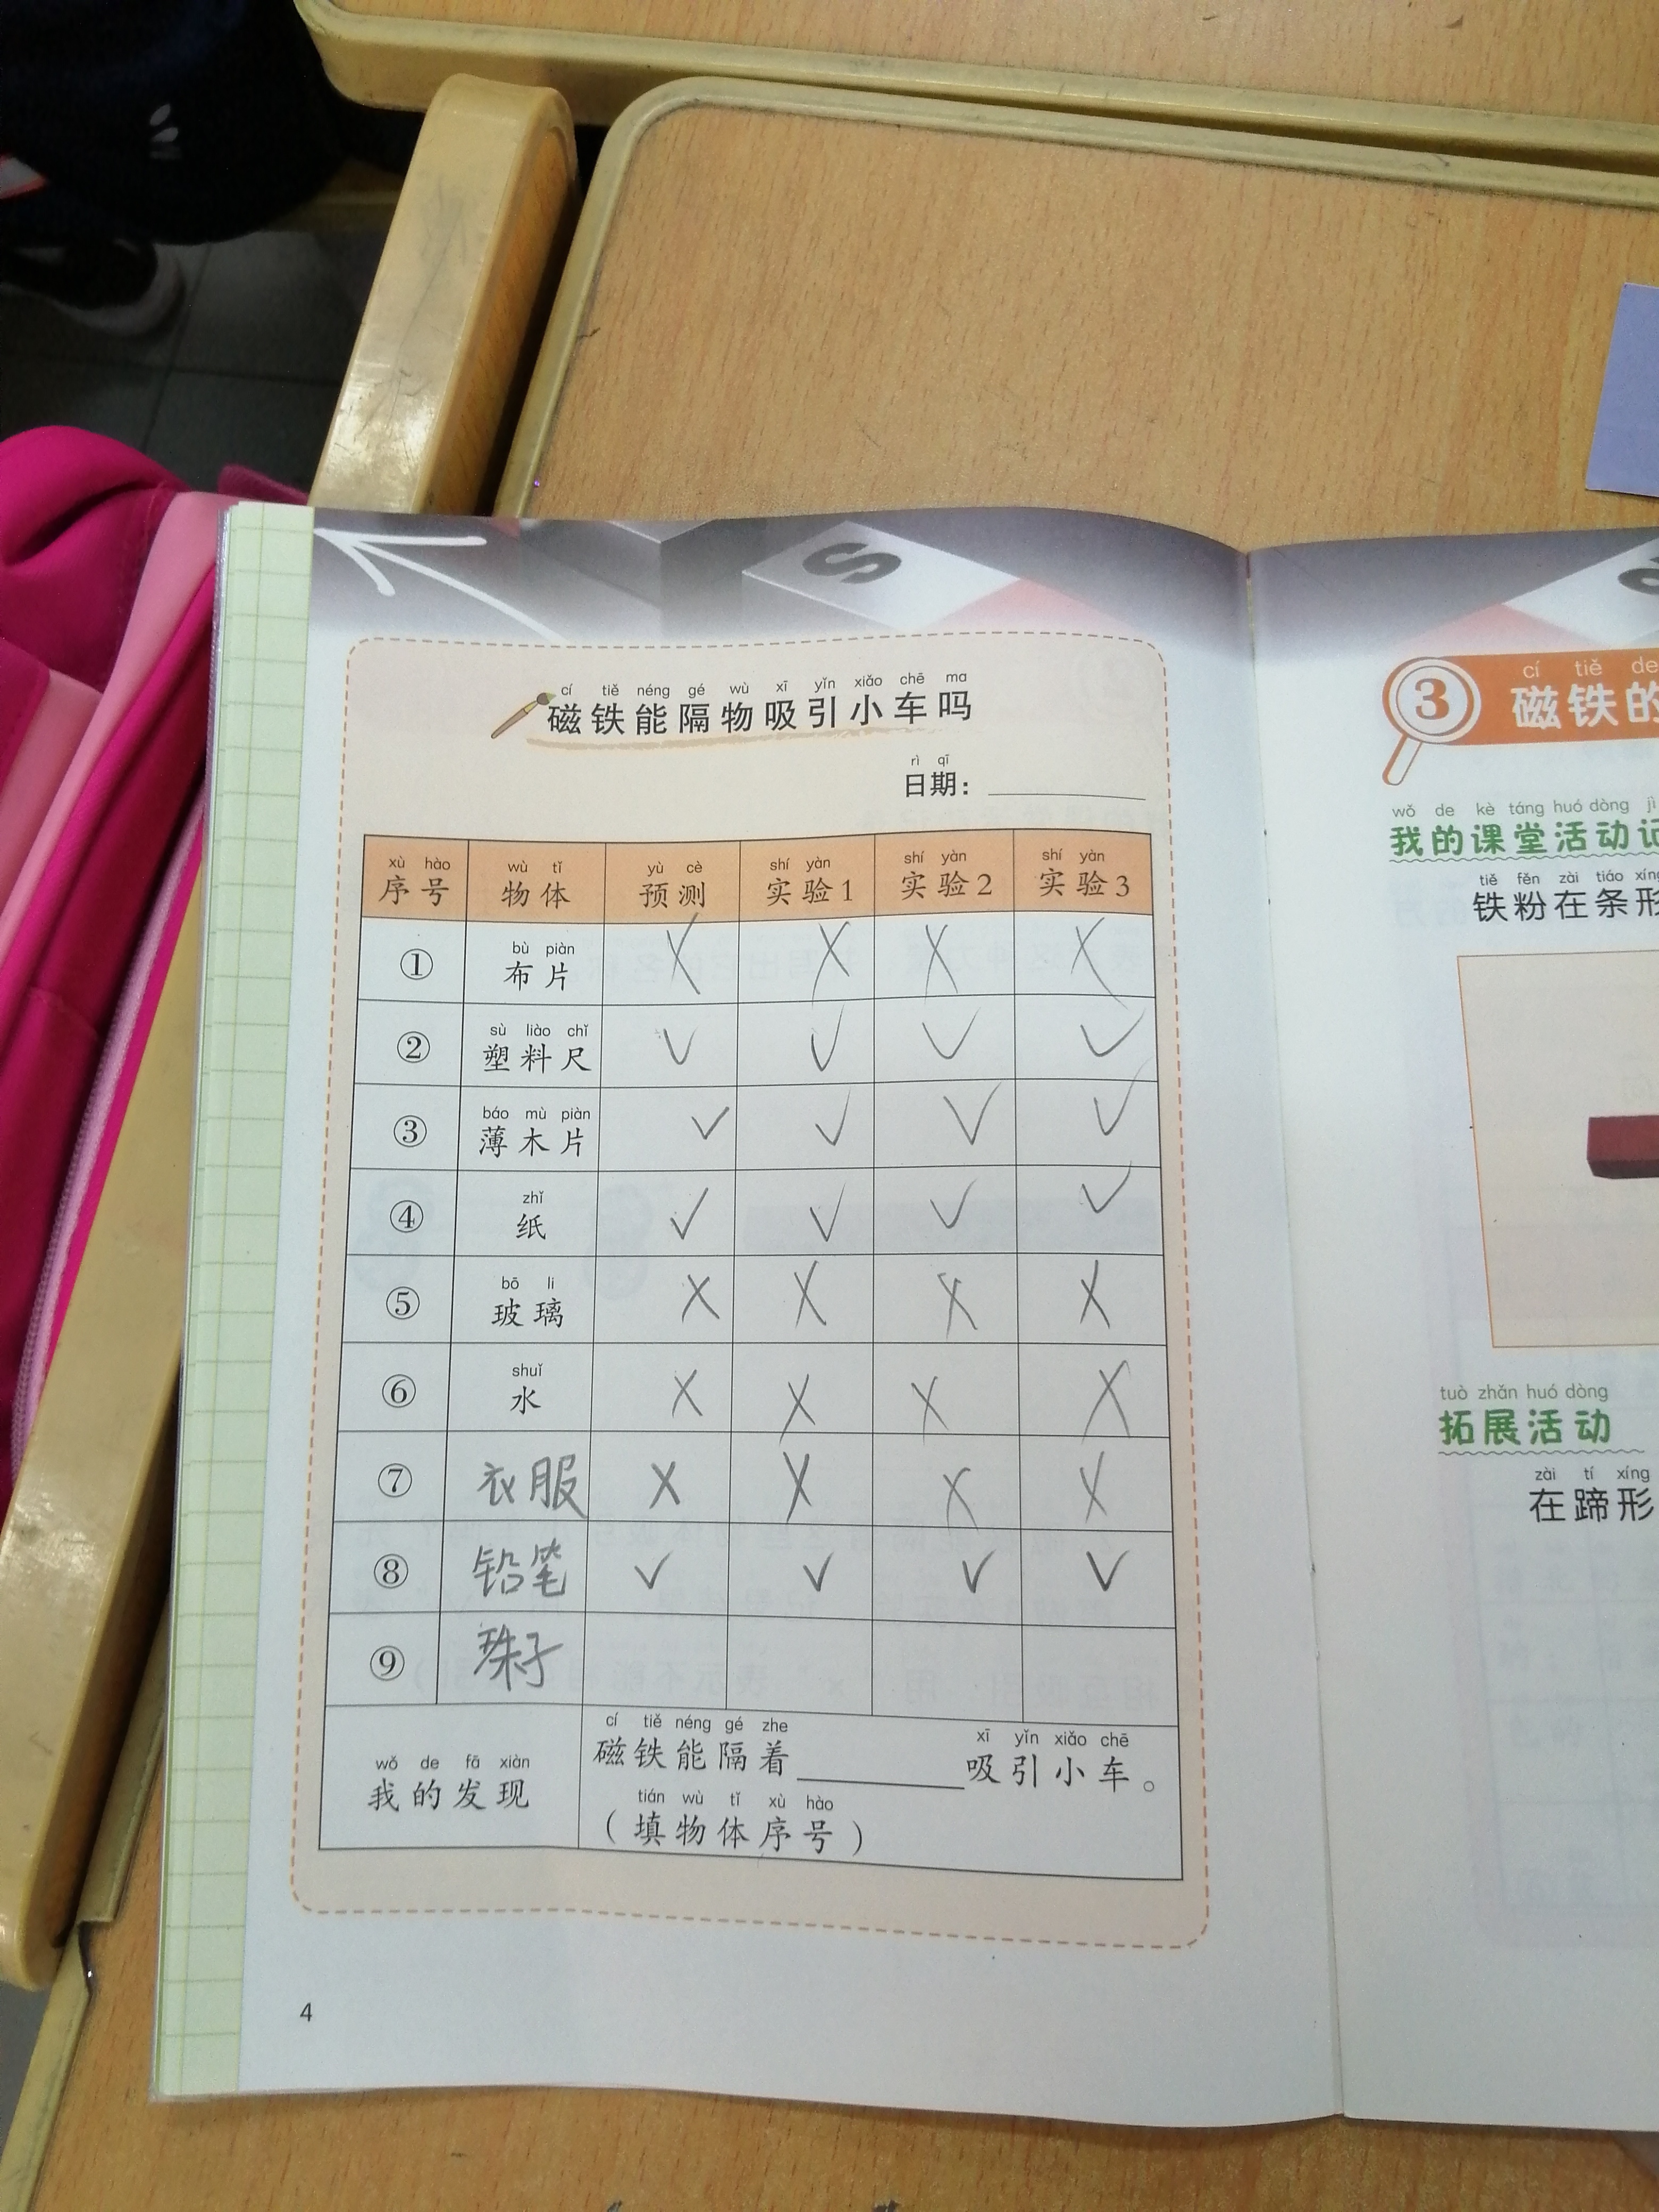 S
cí tiě néng gé wù xī yǐn xiǎo chē ma
磁铁能隔物吸引小车吗
rì qī
日期：
xù hào wù tǐ yù cè shí yàn shí yàn shí yàn
序号 物体 预测 实验1 实验2 实验3
bù piàn
① 布片 X X X X
sù liào chǐ
② 塑料尺 ✓ ✓ ✓ ✓
báo mù piàn
③ 薄木片 ✓ ✓ ✓ ✓
zhǐ
④ 纸 ✓ ✓ ✓ ✓
bō li
⑤ 玻璃 X X X X
shuǐ
⑥ 水 X X X X
⑦ 衣服 X X X X
⑧ 铅笔 ✓ ✓ ✓ ✓
⑨ 珠子
wǒ de fā xiàn
我的发现
cí tiě néng gé zhe xī yǐn xiǎo chē
磁铁能隔着 吸引小车。
tián wù tǐ xù hào
（填物体序号）
4
cí tiě de
3 磁铁的
wǒ de kè táng huó dòng jì
我的课堂活动记
tiě fěn zài tiáo xíng
铁粉在条形
tuò zhǎn huó dòng
拓展活动
zài tí xíng
在蹄形